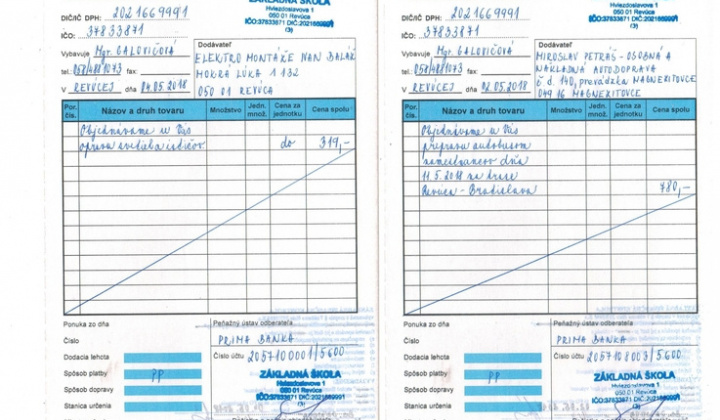 ZÁKLADNÁ ŠKOLA
Hviezdoslavova 1
050 01 Revúca
IČO:37833871 DIČ:2021669991
/3/
DIČ/IČ DPH: 2021669991
IČO: 37833871
Vybavuje Mgr. GALOVIČOVÁ
tel.: 058/4881073 fax:
V REVÚCEJ dňa 04.05.2018
Dodávateľ
ELEKTRO MONTÁŽE IVAN BALÁŽ
MOKRÁ LÚKA 132
050 01 REVÚCA
Por. čís. Názov a druh tovaru Množstvo Jedn. množ. Cena za jednotku Cena spolu
Objednávame u Vás
oprava do 319,-
Ponuka zo dňa
Číslo
Dodacia lehota
Spôsob platby PP
Spôsob dopravy
Stanica určenia
Peňažný ústav odberateľa
PRIMA BANKA
Číslo účtu 2057100001/5600
ZÁKLADNÁ ŠKOLA
Hviezdoslavova 1
050 01 Revúca
IČO:37833871 DIČ:2021669991
ZÁKLADNÁ ŠKOLA
Hviezdoslavova 1
050 01 Revúca
IČO:37833871 DIČ:2021669991
/3/
DIČ/IČ DPH: 2021669991
IČO: 37833871
Vybavuje Mgr. GALOVIČOVÁ
tel.: 058/4881073 fax:
V REVÚCEJ dňa 02.05.2018
Dodávateľ
MIROSLAV PETRÁŠ - OSOBNÁ A
NÁKLADNÁ AUTODOPRAVA
č d. 140, prevádzka MAGNEZITOVCE
049 16 MAGNEZITOVCE
Por. čís. Názov a druh tovaru Množstvo Jedn. množ. Cena za jednotku Cena spolu
Objednávame u Vás
prepravu autobusom
zamestnancov dňa
11.5.2018 na trase
Revúca - Bratislava 780,-
Ponuka zo dňa
Číslo
Dodacia lehota
Spôsob platby PP
Spôsob dopravy
Stanica určenia
Peňažný ústav odberateľa
PRIMA BANKA
Číslo účtu 2057108003/5600
ZÁKLADNÁ ŠKOLA
Hviezdoslavova 1
050 01 Revúca
IČO:37833871 DIČ:2021669991
/3/